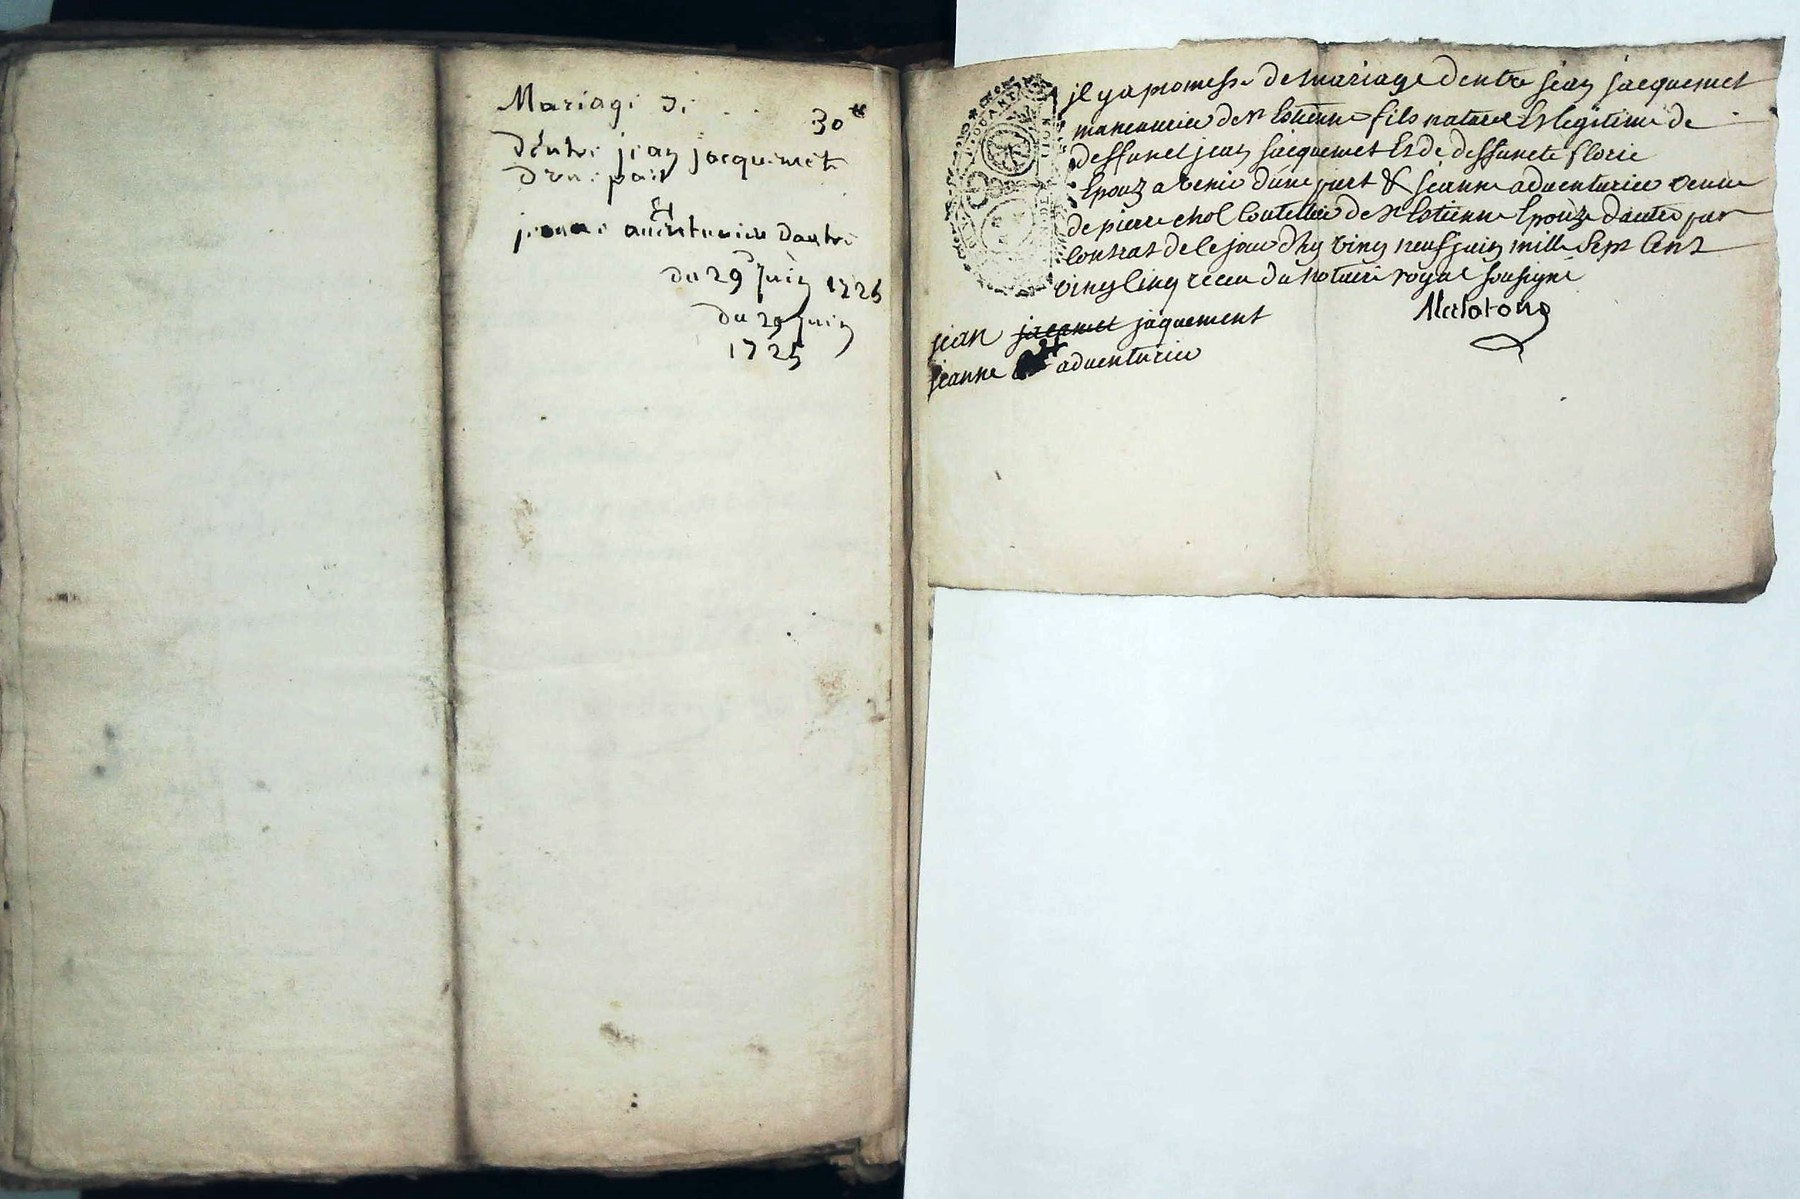 Mariage de
30
d'entre jean jacquemet
d'une part
Et
jeanne auenturier dautre
du 29 Juin 1725
du 29 Juin
1725
jl ya promesse de mariage dentre jean jacquemet
maneuurier de st Estienne fils naturel Et legitime de
deffunct jean jacquemet Et de deffuncte florie
Epoux a venir d'une part & jeanne aduenturier veuue
de pierre chol Coutellier de st Estienne Epouze dautre part
Contrat de Ce jourd'hy vingt neuf juin mille Sept Cent
vingt Cinq receu du notaire royal sousigné
jean jaquement
jeanne aduenturier